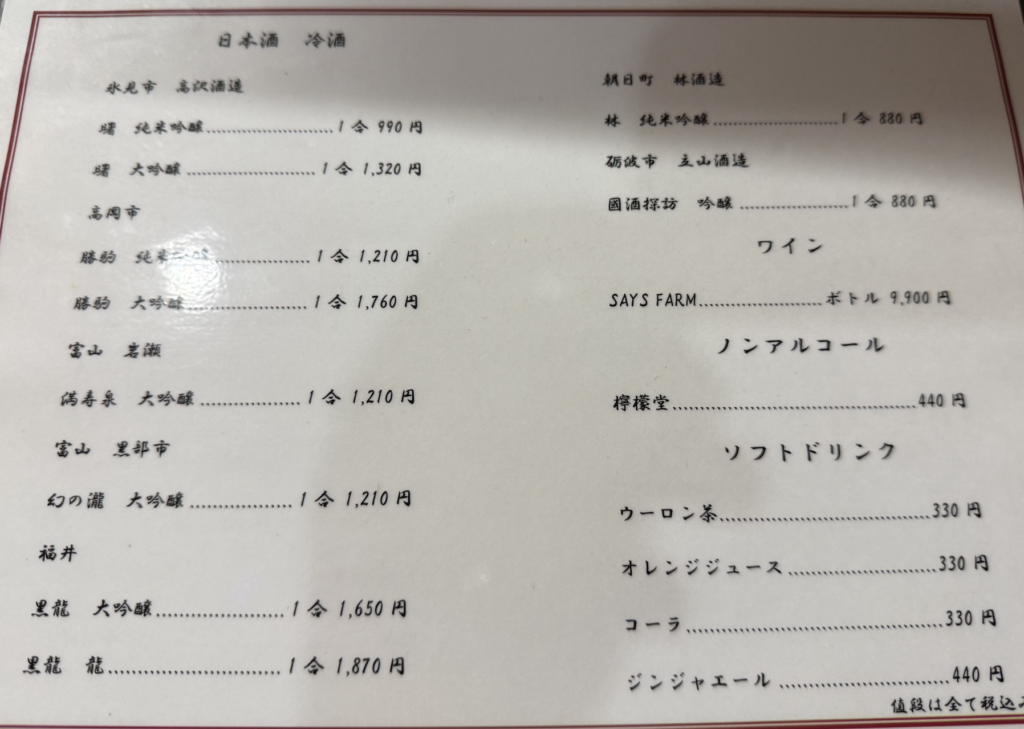 日本酒 冷酒
氷見市 高沢酒造
曙 純米吟醸......................1合 990円
曙 大吟醸......................1合 1,320円
高岡市
勝駒 純米......................1合 1,210円
勝駒 大吟醸......................1合 1,760円
富山 岩瀬
満寿泉 大吟醸..................1合 1,210円
富山 黒部市
幻の瀧 大吟醸..................1合 1,210円
福井
黒龍 大吟醸......................1合 1,650円
黒龍 龍..............................1合 1,870円
朝日町 林酒造
林 純米吟醸......................1合 880円
砺波市 立山酒造
國酒探訪 吟醸..................1合 880円
ワイン
SAYS FARM......................ボトル 9,900円
ノンアルコール
檸檬堂..........................................440円
ソフトドリンク
ウーロン茶....................................330円
オレンジジュース..........................330円
コーラ............................................330円
ジンジャエール..............................440円
値段は全て税込み